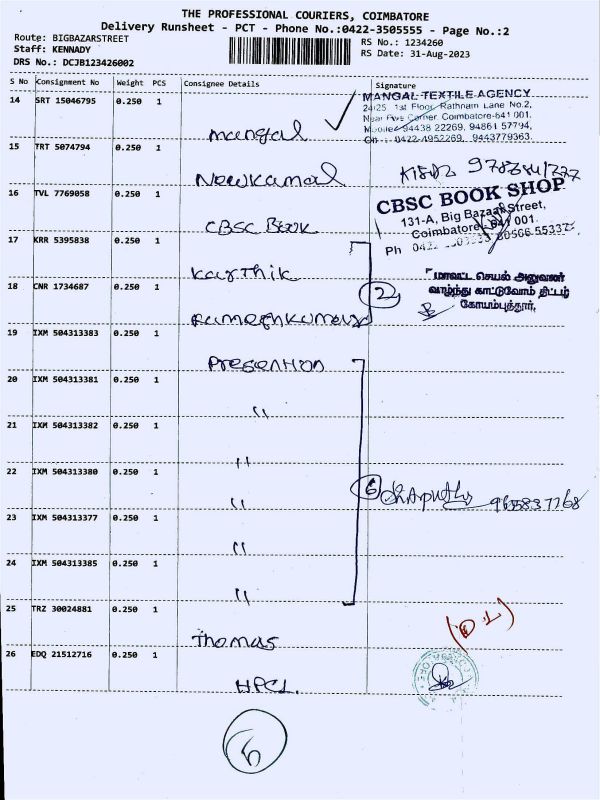 THE PROFESSIONAL COURIERS, COIMBATORE
Delivery Runsheet - PCT - Phone No.:0422-3505555 - Page No.:2
Route: BIGBAZARSTREET
RS No.: 1234260
Staff: KENNADY
RS Date: 31-Aug-2023
DRS No.: DCJB123426002
S No Consignment No Weight PCS Consignee Details Signature
14 SRT 15046795 0.250 1
MANGAL TEXTILE AGENCY
24/25, 1st Floor, Rathnam Lane No.2,
Near Five Corner, Coimbatore-641 001.
Mobile: 94438 22269, 94861 57794,
0422-4952269, 9443779363.
mangal
15 TRT 5074794 0.250 1
Newkamal
16 TVL 7769058 0.250 1
CBSC BOOK SHOP
131-A, Big Bazaar Street,
Coimbatore - 641 001.
Ph 0422
CBSC Book
17 KRR 5395838 0.250 1
Karthik
18 CNR 1734687 0.250 1
2
மாவட்ட செயல் அலுவலர்
வாழ்ந்து காட்டுவோம் திட்டம்
கோயம்புத்தூர்.
Rameshkumar
19 IXM 504313383 0.250 1
Presention
20 IXM 504313381 0.250 1
"
21 IXM 504313382 0.250 1
"
22 IXM 504313380 0.250 1
"
6
23 IXM 504313377 0.250 1
"
24 IXM 504313385 0.250 1
"
25 TRZ 30024881 0.250 1
Thomas
26 EDQ 21512716 0.250 1
HPCL.
6